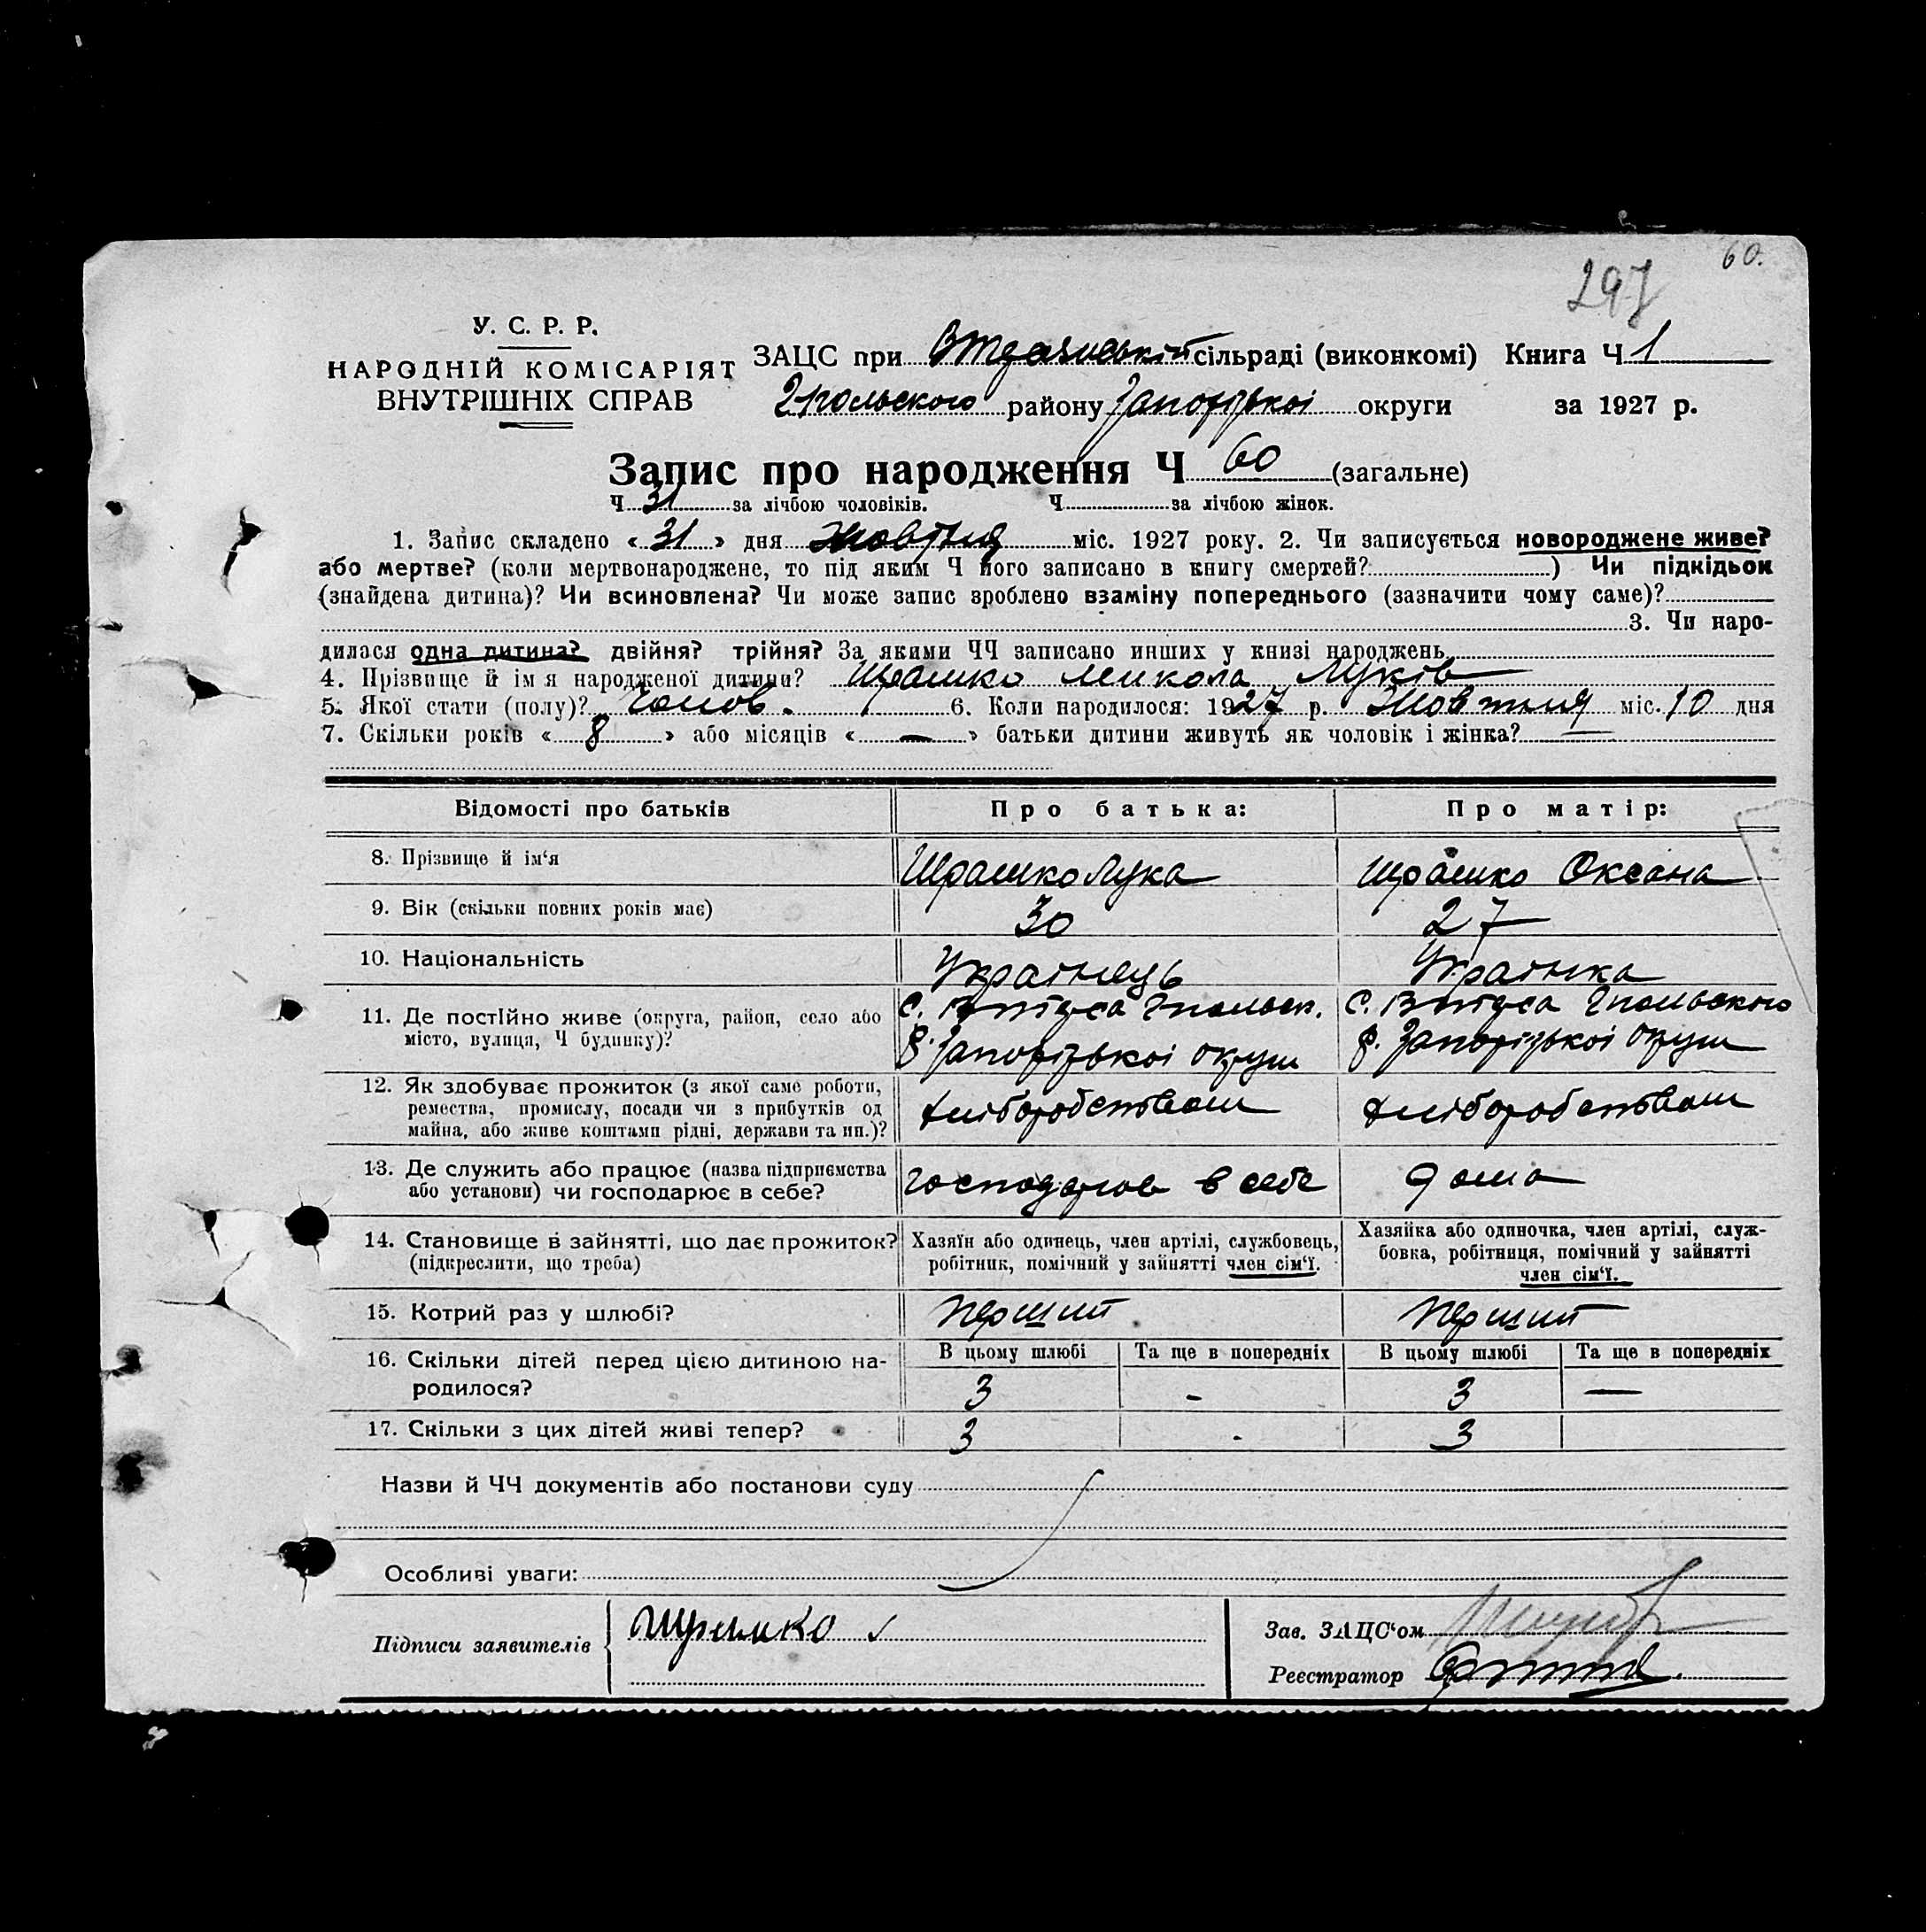 60.
297
У. С. Р. Р.
НАРОДНІЙ КОМІСАРІЯТ
ВНУТРІШНІХ СПРАВ
ЗАЦС при сільраді (виконкомі) Книга Ч 1
району Запорізької округи за 1927 р.
Запис про народження Ч 60 (загальне)
Ч 31 за лічбою чоловіків. Ч за лічбою жінок.
1. Запис складено « 31 » дня Жовтня міс. 1927 року. 2. Чи записується новороджене живе?
або мертве? (коли мертвонароджене, то під яким Ч його записано в книгу смертей? ) Чи підкідьок
(знайдена дитина)? Чи всиновлена? Чи може запис зроблено взаміну попереднього (зазначити чому саме)?
3. Чи наро-
дилася одна дитина? двійня? трійня? За якими ЧЧ записано инших у книзі народжень
4. Прізвище й імя народженої дитини? Микола Луків
5. Якої стати (полу)? Чолов. 6. Коли народилося: 1927 р. Жовтня міс. 10 дня
7. Скільки років « 8 » або місяців « — » батьки дитини живуть як чоловік і жінка? —
Відомості про батьків Про батька: Про матір:
8. Прізвище й ім‘я Лука Оксана
9. Вік (скільки повних років має) 30 27
10. Національність Українець Українка
11. Де постійно живе (округа, район, село або
місто, вулиця, Ч будинку)? р. Запорізької округи р. Запорізької округи
12. Як здобуває прожиток (з якої саме роботи,
ремества, промислу, посади чи з прибутків од
майна, або живе коштами рідні, держави та ин.)? Хліборобством Хліборобством
13. Де служить або працює (назва підприємства
або установи) чи господарює в себе? в себе дома
14. Становище в зайнятті, що дає прожиток?
(підкреслити, що треба)
Хазяїн або одинець, член артілі, службовець,
робітник, помічний у зайнятті член сім‘ї.
Хазяйка або одиночка, член артілі, служ-
бовка, робітниця, помічний у зайнятті
член сім‘ї.
15. Котрий раз у шлюбі? Перший Перший
16. Скільки дітей перед цією дитиною на-
родилося?
В цьому шлюбі Та ще в попередніх В цьому шлюбі Та ще в попередніх
3 - 3 —
17. Скільки з цих дітей живі тепер? 3 - 3
Назви й ЧЧ документів або постанови суду
Особливі уваги:
Підписи заявителів
Зав. ЗАЦС‘ом
Реєстратор